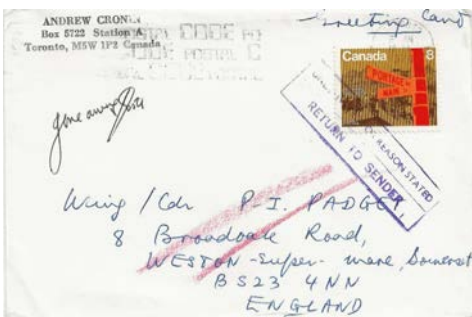 ANDREW CRONIN
Box 5722 Station A,
Toronto, M5W 1P2 Canada
CODE POSTAL
Greeting Card
Canada 8
PORTAGE
MAIN
REASON STATED
RETURN TO SENDER
gone away
Wing / Cdr P-I. PADGET
8 Broadoak Road,
WESTON-super-mare, Somerset
BS23 4NN
ENGLAND